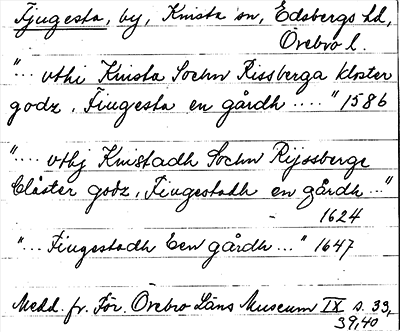 Tjugesta, by, Knista sn, Edsbergs hd,
Örebro l.
"... vthi Knista Sochn Rissberga kloster
godz, Fiugesta en gårdh ...." 1586
".... vthj Knistadh Sochn Rijssberge
Clåster godz, Fiugestadh en gårdh ..."
1624
"... Fiugestadh Een gårdh ..." 1647
Medd. fr. För. Örebro Läns Museum IX s. 33,
39, 40